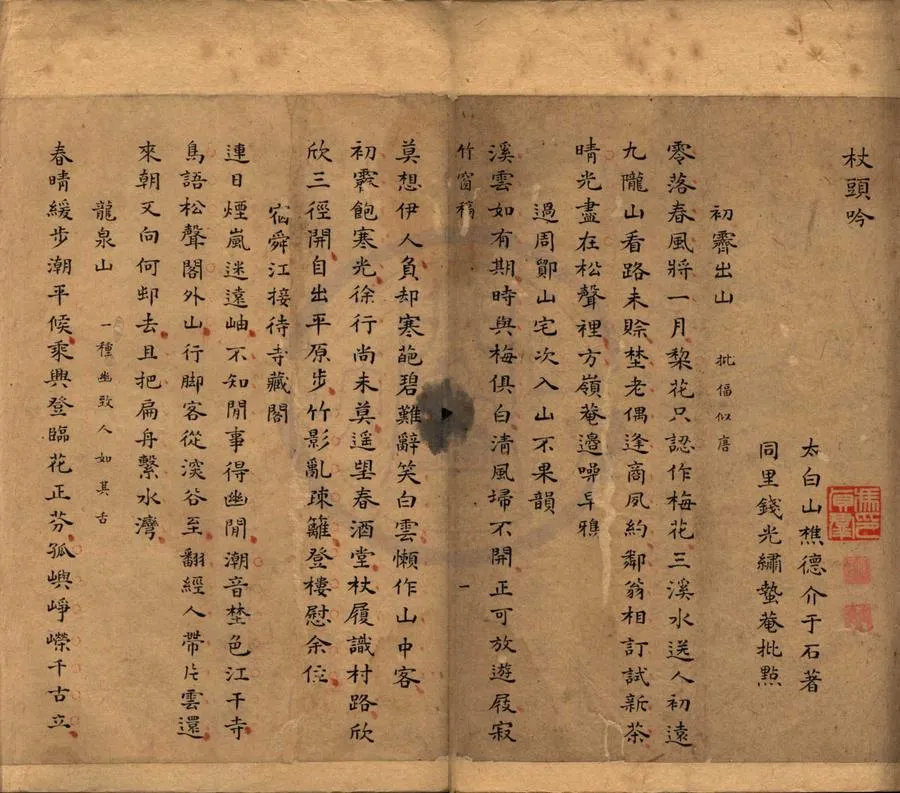 杖頭吟
太白山樵德介于石著
同里錢光繡蟄菴批點
初霽出山
批偪似唐
零落春風將一月棃花只認作梅花三溪水送人初遠
九隴山看路未賒埜老偶逢商夙約鄰翁相訂試新茶
晴光盡在松聲裡方嶺菴邉噪早鴉
過周鄮山宅次入山不果韻
溪雲如有期時與梅俱白清風埽不開正可放遊屐寂
竹窗稿
一
莫想伊人負却寒葩碧難辭笑白雲懶作山中客
初霽飽寒光徐行尚未莫遥望春酒堂杖履識村路欣
欣三徑開自出平原步竹影亂疎籬登樓慰余位
宿舜江接待寺藏閣
連日煙嵐迷遠岫不知閒事得幽閒潮音埜色江干寺
鳥語松聲閣外山行脚客從深谷至翻經人帶片雲還
來朝又向何邨去且把扁舟繫水灣
龍泉山
一種幽致人如其舌
春晴緩步潮平候乘興登臨花正芬孤嶼崢嶸千古立